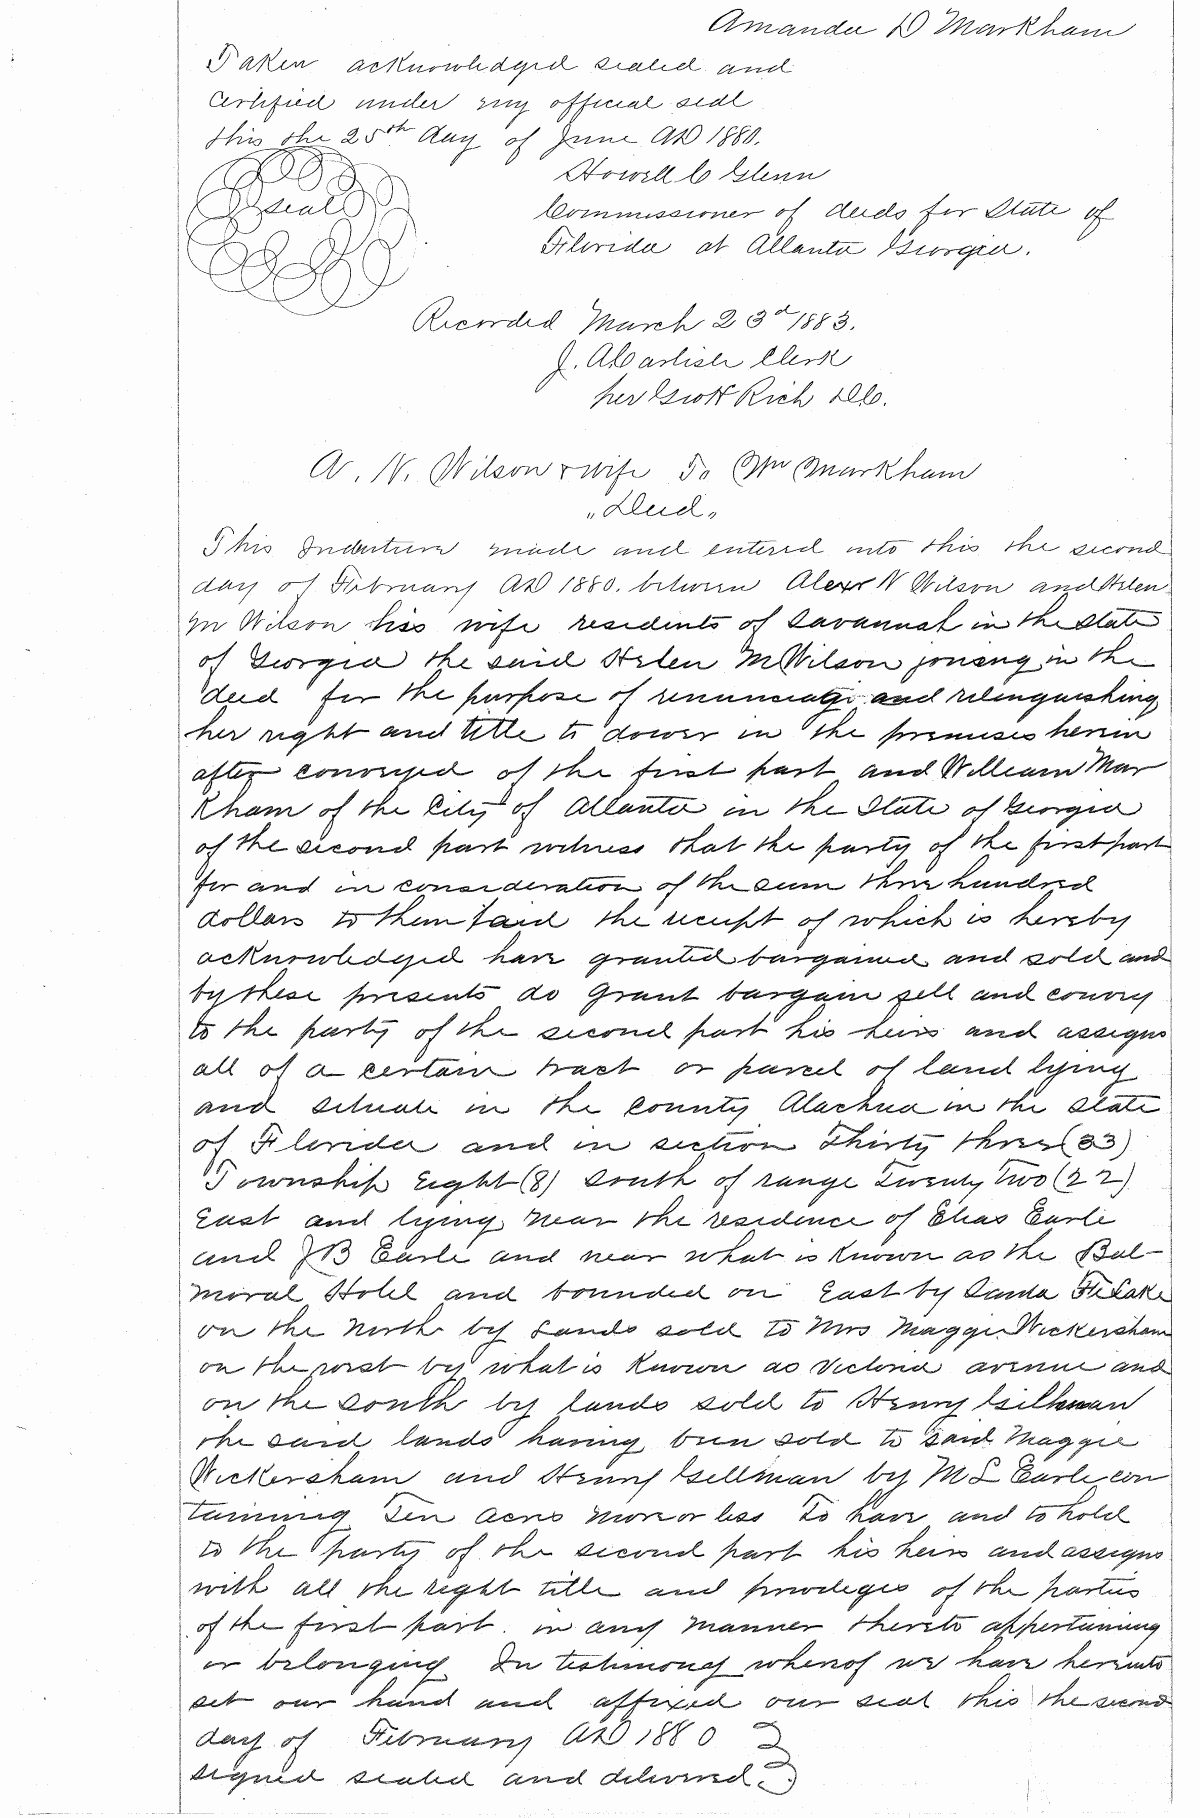 Amanda D Markham
Taken acknowledged sealed and
Certified under my official seal
this the 25th day of June AD 1880.
Howell C Glenn
Seal
Commissioner of deeds for State of
Florida at Atlanta Georgia.
Recorded March 23d 1883.
J. A Carlisle Clerk
per Scott Rich DC.
A. N. Wilson & wife To Wm Markham
"Deed"
This Indenture made and entered into this the second
day of February AD 1880. between Alexr N Wilson and Helen
M Wilson his wife residents of Savannah in the State
of Georgia the said Helen M Wilson joining in the
deed for the purpose of and relinquishing
her right and title to dower in the premises herein
after conveyed of the first part and William Mar
kham of the City of Atlanta in the State of Georgia
of the second part witness that the party of the first part
for and in consideration of the sum three hundred
dollars to them paid the receipt of which is hereby
acknowledged have granted bargained and sold and
by these presents do grant bargain sell and convey
to the party of the second part his heirs and assigns
all of a certain tract or parcel of land lying
and situate in the county Alachua in the State
of Florida and in section Thirty three (33)
Township Eight (8) South of range Twenty Two (22)
East and lying near the residence of Elias Earle
and J B Earle and near what is known as the Bal-
moral Hotel and bounded on East by Santa Fe Lake
on the North by Lands sold to Mrs Maggie Wickersham
on the west by what is known as Victoria avenue and
on the South by lands sold to Henry Gillman
the said lands having been sold to said Maggie
Wickersham and Henry Gillman by M L Earle con
taining Ten acres more or less To have and to hold
to the party of the second part his heirs and assigns
with all the right title and privileges of the parties
of the first part. in any manner thereto appertaining
or belonging In testimony whereof we have hereunto
set our hand and affixed our seal this the second
day of February AD 1880
signed sealed and delivered.